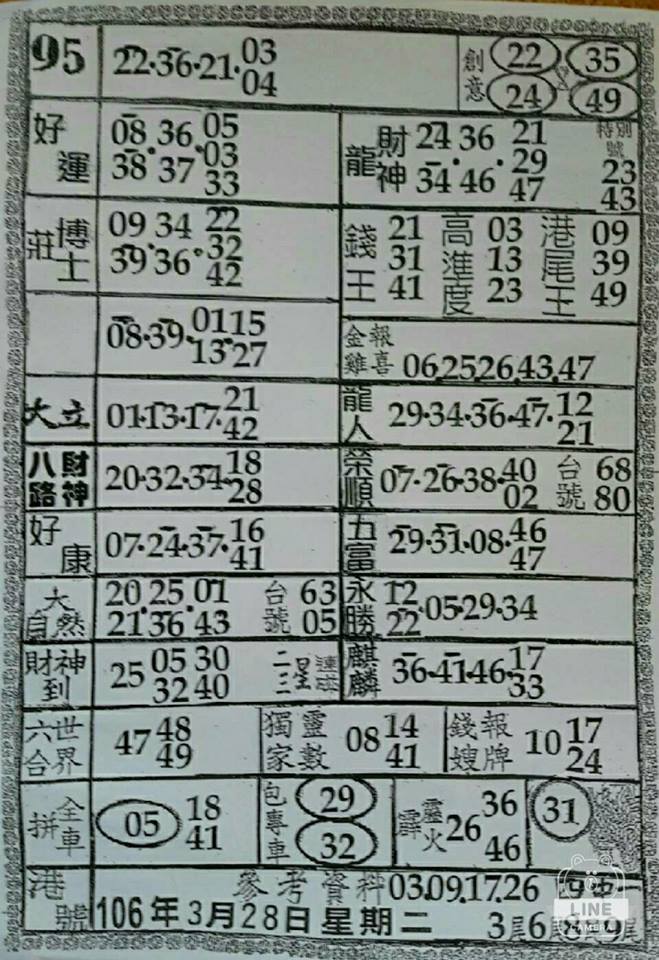 95 22·36·21·03 04
創意 22 35 24 49
好運 08 36 05
38 37 03
33
龍 財神 24 36 21 特別號
34 46 29 23
47 43
莊博士 09 34 22
39 36 32
42
錢王 21 31 41 高進度 03 13 23 港尾王 09 39 49
08·39·01 15
13 27
金雞報喜 06,25,26,43,47
大立 01·13·17·21
42
龍人 29·34·36·47·12
21
八路財神 20·32·34·18
28
榮順 07·26·38·40 台號 68
02 80
好康 07·24·37·16
41
五富 29·31·08·46
47
大自然 20 25 01 台號 63
21 36 43 05
永勝 12
22·05·29·34
財神到 25 05 30 二三星連碰
32 40
麒麟 36·41·46·17
33
六合世界 47 48
49
獨家靈數 08 14
41
錢嫂報牌 10 17
24
拼全車 05 18
41
包專車 29
32
霹靂火 26 36
46
31
港號 參考資料 03.09.17.26
106年3月28日星期二 3尾6尾8尾9尾
LINE
CAMERA